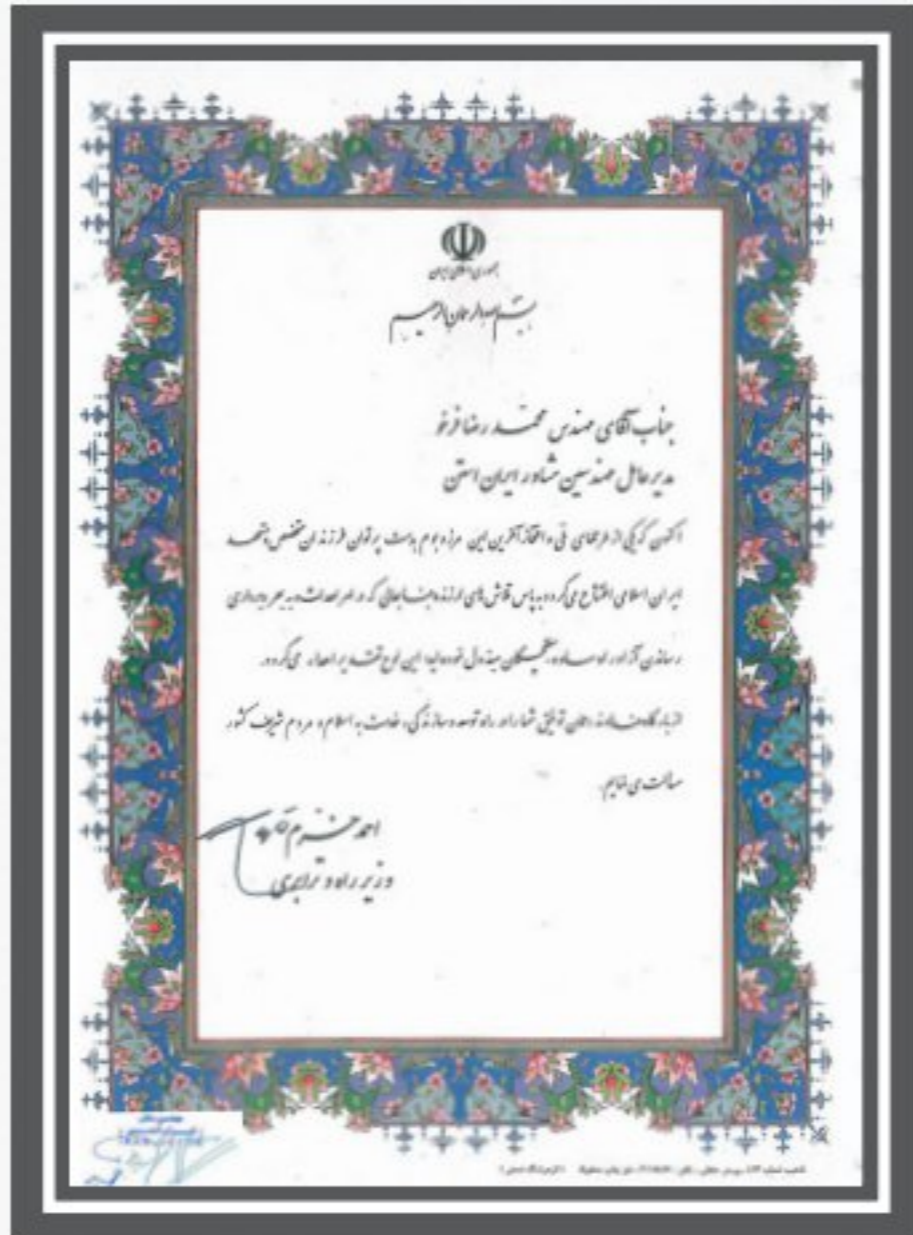 جمهوری اسلامی ایران
بسم الله الرحمن الرحیم
جناب آقای مهندس محمد رضا فرخو
مدیرعامل مهندسین مشاور ایران استن
اکنون که یکی از طرحهای ملی و افتخارآفرین این مرز و بوم بدست پرتوان فرزندان متخصص و متعهد
ایران اسلامی افتتاح می‌گردد به پاس تلاش‌های ارزنده جنابعالی که در امر احداث و به بهره‌برداری
رساندن مبذول نموده‌اید این لوح تقدیر اهداء می‌گردد.
از بارگاه خداوند رحمان توفیق شما را در راه توسعه و سازندگی و خدمت به اسلام و مردم شریف کشور
مسالت می نمایم.
احمد خرم
وزیر راه و ترابری